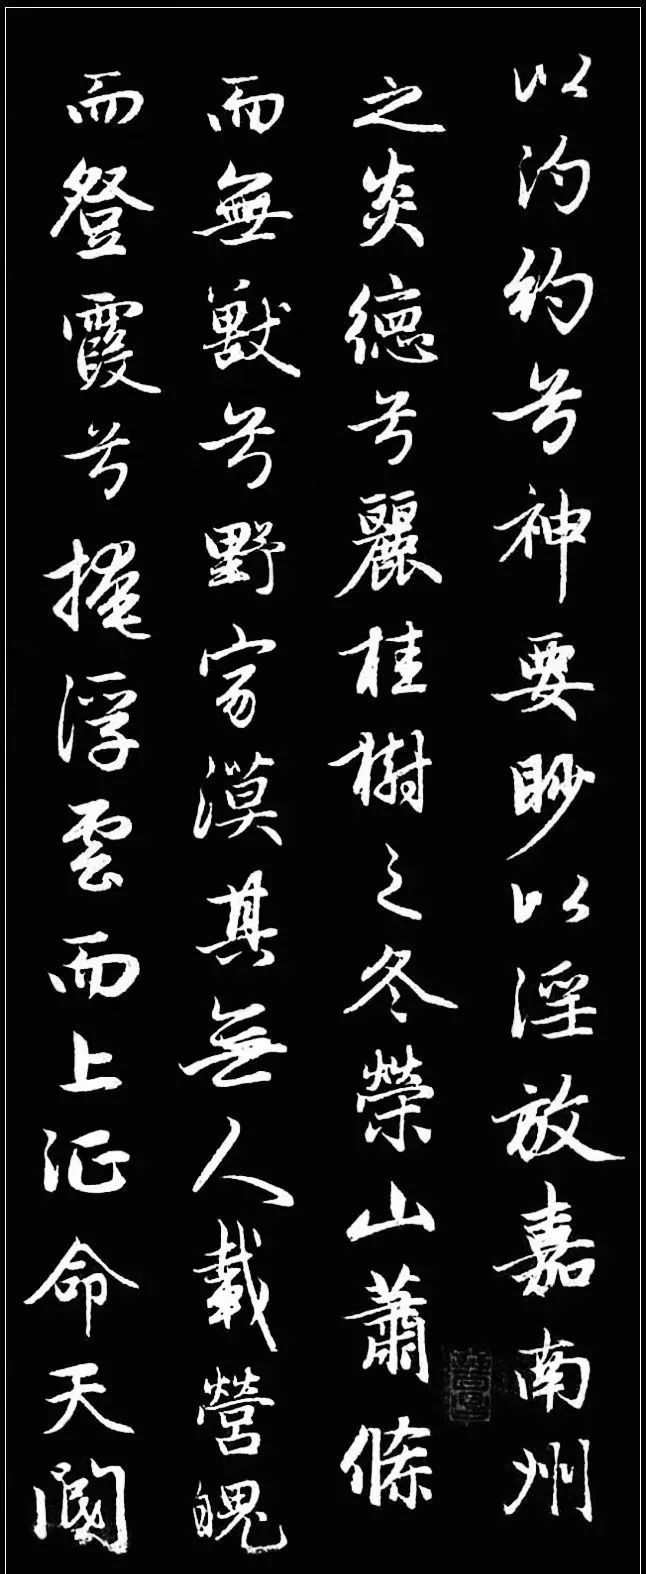 以汋約兮神要眇以淫放嘉南州
之炎德兮麗桂樹之冬榮山蕭條
而無獸兮野寂漠其無人載營魄
而登霞兮掩浮雲而上征命天閽